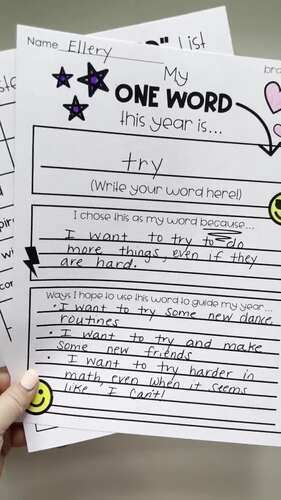 " List
Name Ellery
My
bra
ONE WORD
this year is...
try
(Write your word here!)
I chose this as my word because...
I want to try to do
more things, even if they
are hard.
Ways I hope to use this word to guide my year...
• I want to try some new dance
routines
• I want to try and make
some new friends
• I want to try harder in
math, even when it seems
like I can't!